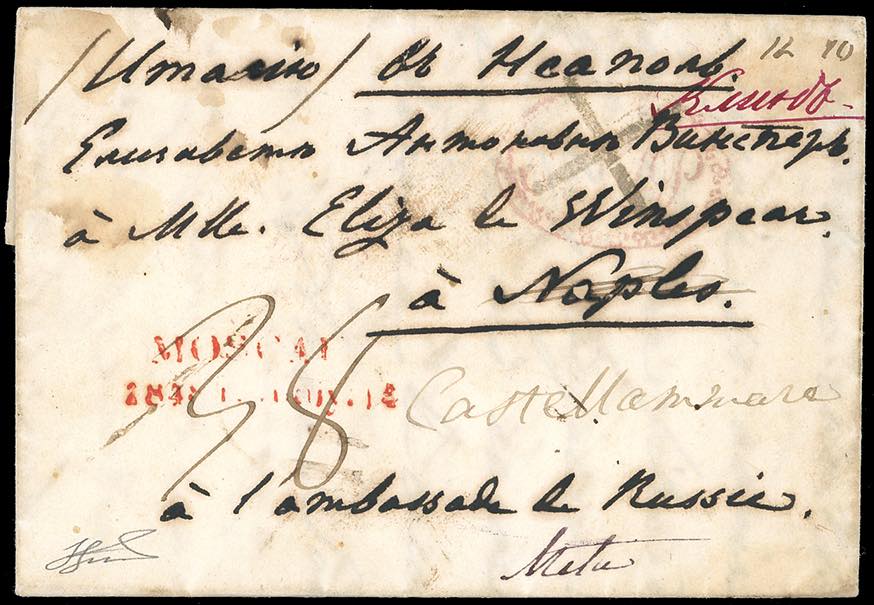 /Италію/ въ Неаполь, 12 10
Клинъ
Елизаветѣ Антоновнѣ Винсперъ.
à Mlle. Eliza de Winspear.
à Naples.
MOSCAU
38
Castellammare
à l'ambassade de Russie.